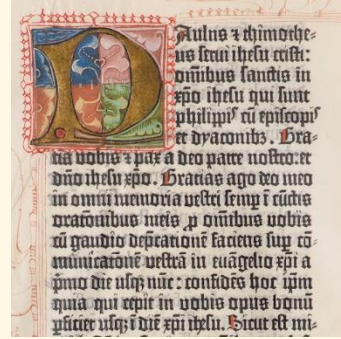 Paulus ⁊ thimothe-
us serui ihesu cristi:
omībus sanctis in
xp̄o ihesu qui sunt
philippis cū episcopis
et dyaconibꝫ. Gra-
tia vobis ⁊ pax a deo patre nostro: et
dn̄o ihesu xp̄o. Gracias ago deo meo
in omni memoria vestri semꝑ ī cūctis
orac̄onibus meis ꝓ omībus vobis
cū gaudio dep̄cationē faciens suꝑ cō-
municationē vestrā in euāgelio xp̄i a
p̄mo die usqꝫ nūc: confidēs hoc ip̄m
quia qui cepit in vobis opus bonū
ꝑficiet usqꝫ ī diē xp̄i ihesu. Sicut est mi-